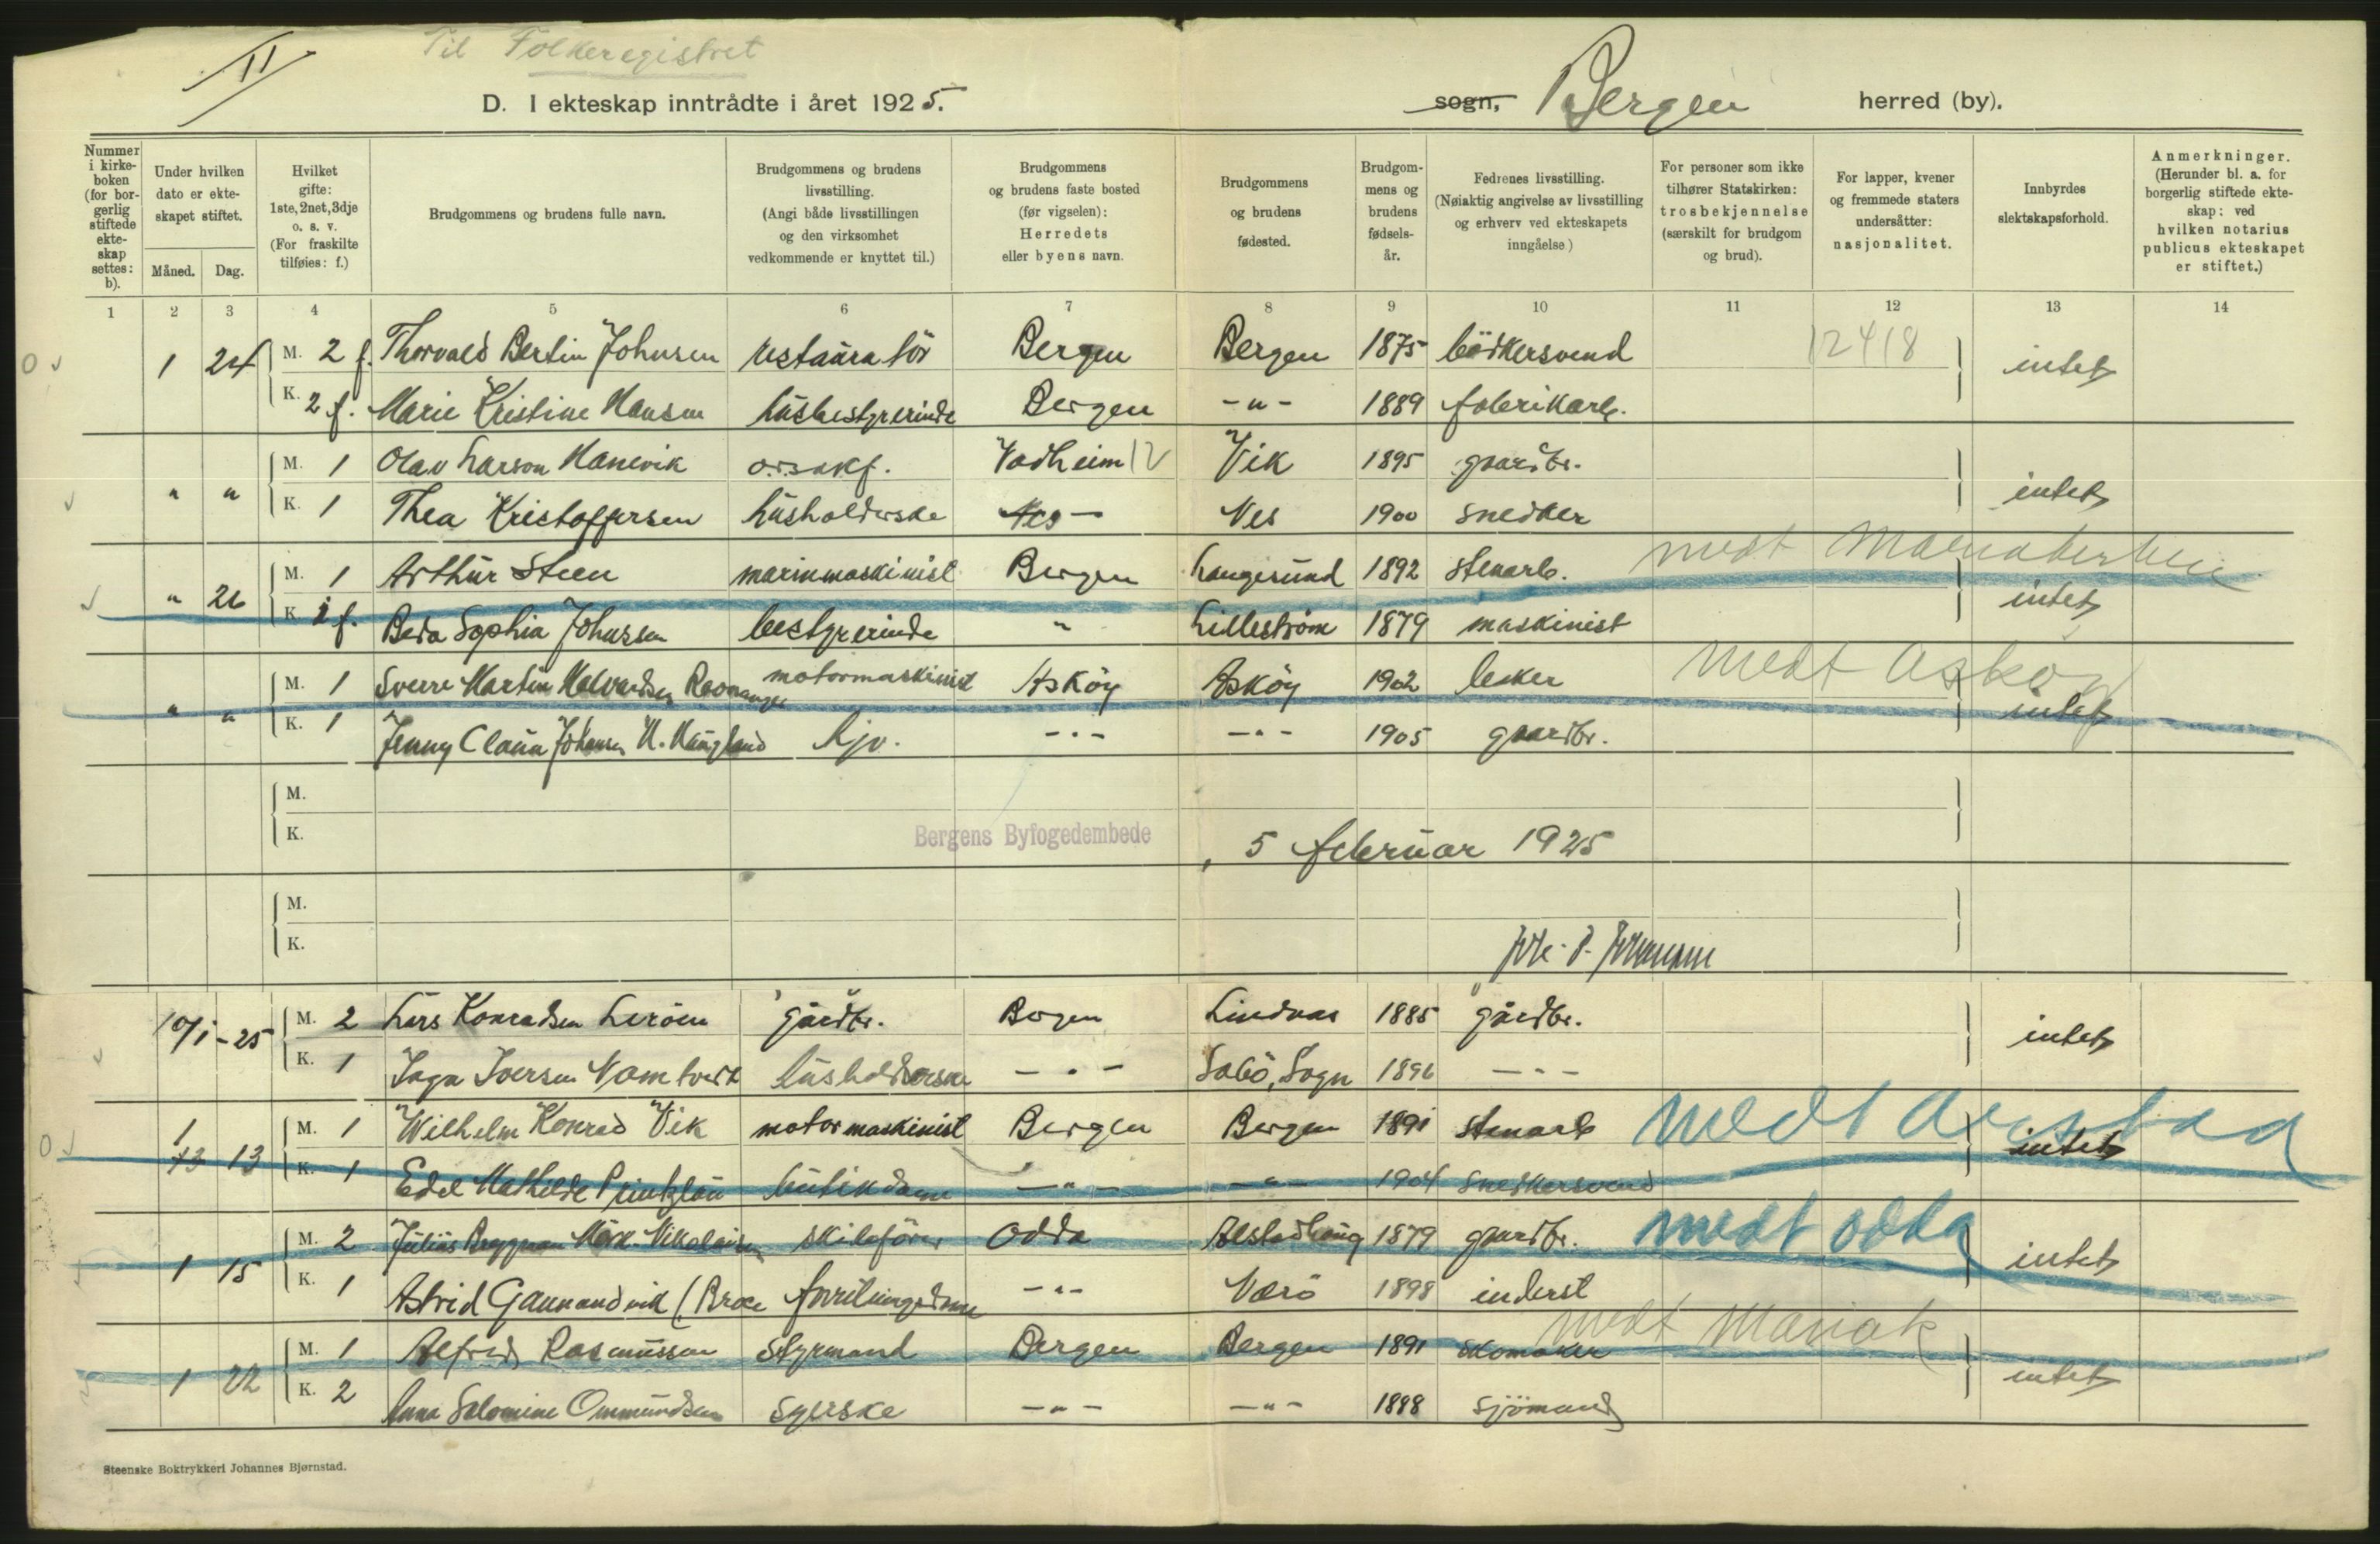 II
Til Folkeregistret
D. I ekteskap inntrådte i året 1925.
sogn, Bergen herred (by).
Nummer i kirke-boken (for bor-gerlig stiftede ekte-skap settes: b).
Under hvilken dato er ekte-skapet stiftet.
Måned. Dag.
Hvilket gifte: 1ste, 2net, 3dje o. s. v. (For fraskilte tilføies: f.)
Brudgommens og brudens fulle navn.
Brudgommens og brudens livsstilling. (Angi både livsstillingen og den virksomhet vedkommende er knyttet til.)
Brudgommens og brudens faste bosted (før vigselen): Herredets eller byens navn.
Brudgommens og brudens fødested.
Brudgom-mens og brudens fødsels-år.
Fedrenes livsstilling. (Nøiaktig angivelse av livsstilling og erhverv ved ekteskapets inngåelse)
For personer som ikke tilhører Statskirken: trosbekjennelse (særskilt for brudgom og brud).
For lapper, kvener og fremmede staters undersåtter: nasjonalitet.
Innbyrdes slektskapsforhold.
Anmerkninger. (Herunder bl. a. for borgerlig stiftede ekte-skap: ved hvilken notarius publicus ekteskapet er stiftet.)
1 2 3 4 5 6 7 8 9 10 11 12 13 14
1 24 M. 2 f. Thorvald Bertin Johnsen restauratör Bergen Bergen 1875 bödkersvend 12418 intet
K. 2 f. Marie Kristine Hansen husbestyrerinde Bergen -"- 1889 fabrikarb.
" " M. 1 Olav Larson Hanevik Vadheim 12 Vik 1895 gaardbr. intet
K. 1 Thea Kristoffersen husholderske Nes - Nes 1900 snedker
" 26 M. 1 Arthur Steen marinmaskinist Bergen Langesund 1892 stenarb. medt Mariakirken intet
K. 1 f. Beda Sophia Johnssen bestyrerinde " Lilleström 1879 maskinist
" " M. 1 Sverre Martin Halvardsen Ravnanger motormaskinist Asköy Asköy 1902 medt Askøy intet
K. 1 Jenny Johansen H. Haugland hjv. -"- -"- 1905 gaardbr.
M.
K.
Bergens Byfogedembede, 5 februar 1925
M.
K.
10/1-25 M. 2 Lars Konradsen Leröen gårdbr. Bergen Lindaas 1885 gårdbr. intet
K. 1 Inga Iversen Namtvedt husholderske -"- Solö, Sogn 1896 -"-
1 13 13 M. 1 Wilhelm Konrad Vik motormaskinist Bergen Bergen 1891 stenarb medt Aarstad intet
K. 1 Edel Mathilde Printzlau butikdame -"- -"- 1904 snedkersvend
1 15 M. 2 Julius Mörk-Nikolaisen skibsförer Odda Alstadhaug 1879 gaardbr. medt Odda intet
K. 1 Astrid forretningsdame -"- Værö 1898 inderst
1 22 M. 1 Alfred Rasmussen styrmand Bergen Bergen 1891 skomaker medt Mariak intet
K. 2 Anna Salomine Ommundsen syerske -"- -"- 1898 sjömand
Steenske Boktrykkeri Johannes Bjørnstad.